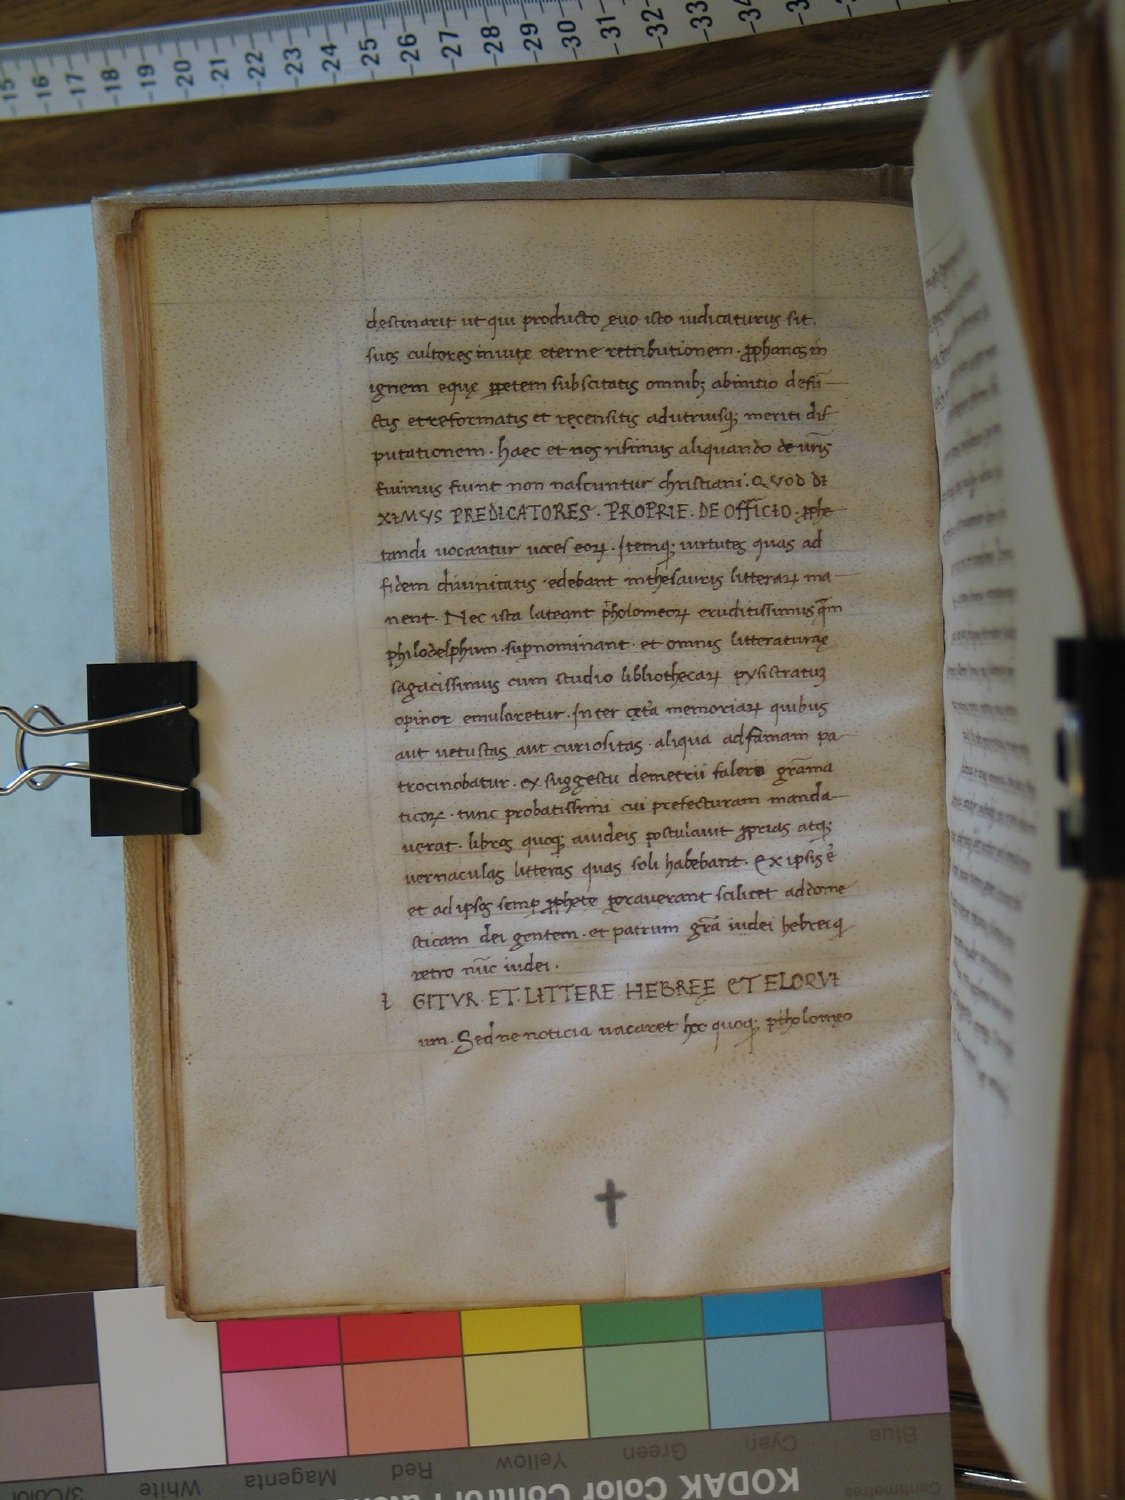 -15 -16 -17 -18 -19 -20 -21 -22 -23 -24 -25 -26 -27 -28 -29 -30 -31 -32 -33 -34
destinarit ut qui producto ęuo isto iudicaturus sit.
suos cultores in uitę eterne retributionem. ꝓphanos in
ignem equę ꝑpetem subscitatis omnibꝫ abinitio defū
ctis et reformatis et recensitis ad utriusqꝫ meriti dis
putationem. haec et nos risimus aliquando de ur̄is
fuimus fiunt non nascuntur christiani. QVOD DI
XIMVS PREDICATORES. PROPRIE. DE OFFICIO. ꝓphe
tandi uocantur uoces eoꝝ. Itemqꝫ uirtutes quas ad
fidem diuinitatis edebant in thesauris litteraꝝ ma
nent. Nec ista lateant ptholomeoꝝ eruditissimus quē
philodelphum supnominant. et omnis litteraturae
sagacissimus cum studio bibliothecaꝝ pysistratuꝫ
opinor emularetur. Inter cęta memoriaꝝ quibus
aut uetustas aut curiositas. aliqua ad famam pa
trocinabatur. ex suggestu demetrii falereo gr̄ama
ticoꝝ. tunc probatissimi cui prefecturam manda
uerat. libros quoqꝫ a iudeis postulauit ꝓprias atqꝫ
uernaculas litteras quas soli habebant. Ex ipsis ē
et ad ipsos semꝑ ꝓphete ꝑorauerant scilicet ad dome
sticam dei gentem. et patrum gr̄a iudei hebrei q
retro nūc iudei.
I GITVR ET LITTERE HEBREE ET ELOQVI
um. Sed ne noticia uacaret hoc quoqꝫ ptholomęo
3/Color White Magenta Red Yellow Green Cyan Blue
KODAK Color Control
Centimetres